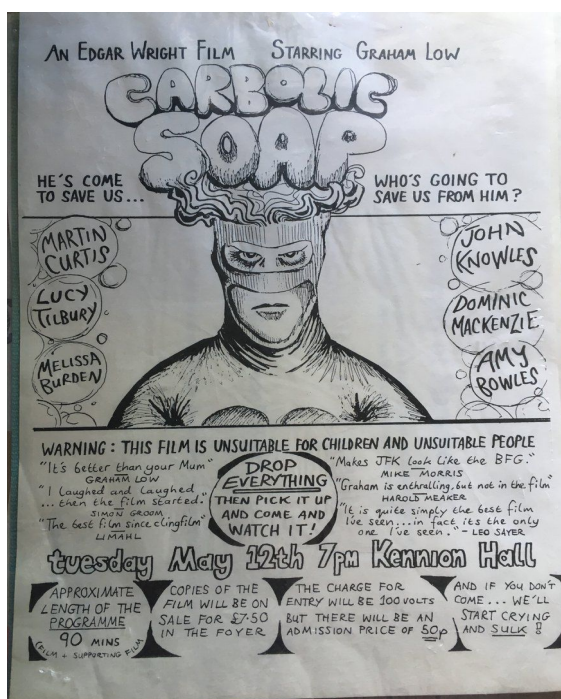 AN EDGAR WRIGHT FILM STARRING GRAHAM LOW
CARBOLIC
SOAP
HE'S COME
TO SAVE US...
WHO'S GOING TO
SAVE US FROM HIM?
MARTIN
CURTIS
LUCY
TILBURY
MELISSA
BURDEN
JOHN
KNOWLES
DOMINIC
MACKENZIE
AMY
BOWLES
WARNING: THIS FILM IS UNSUITABLE FOR CHILDREN AND UNSUITABLE PEOPLE
"It's better than your Mum"
GRAHAM LOW
"I laughed and laughed
...then the film started"
SIMON GROOM
"The best film since clingfilm"
LIMAHL
DROP
EVERYTHING
THEN PICK IT UP
AND COME AND
WATCH IT!
"Makes JFK look like the BFG."
MIKE MORRIS
"Graham is enthralling, but not in the film"
HAROLD MEAKER
"It is quite simply the best film
I've seen...in fact its the only
one I've seen." - LEO SAYER
tuesday May 12th 7pm Kennion Hall
APPROXIMATE
LENGTH OF THE
PROGRAMME
90 MINS
(FILM + SUPPORTING FILM)
COPIES OF THE
FILM WILL BE ON
SALE FOR £7.50
IN THE FOYER
THE CHARGE FOR
ENTRY WILL BE 100 VOLTS
BUT THERE WILL BE AN
ADMISSION PRICE OF 50p
AND IF YOU DON'T
COME... WE'LL
START CRYING
AND SULK!